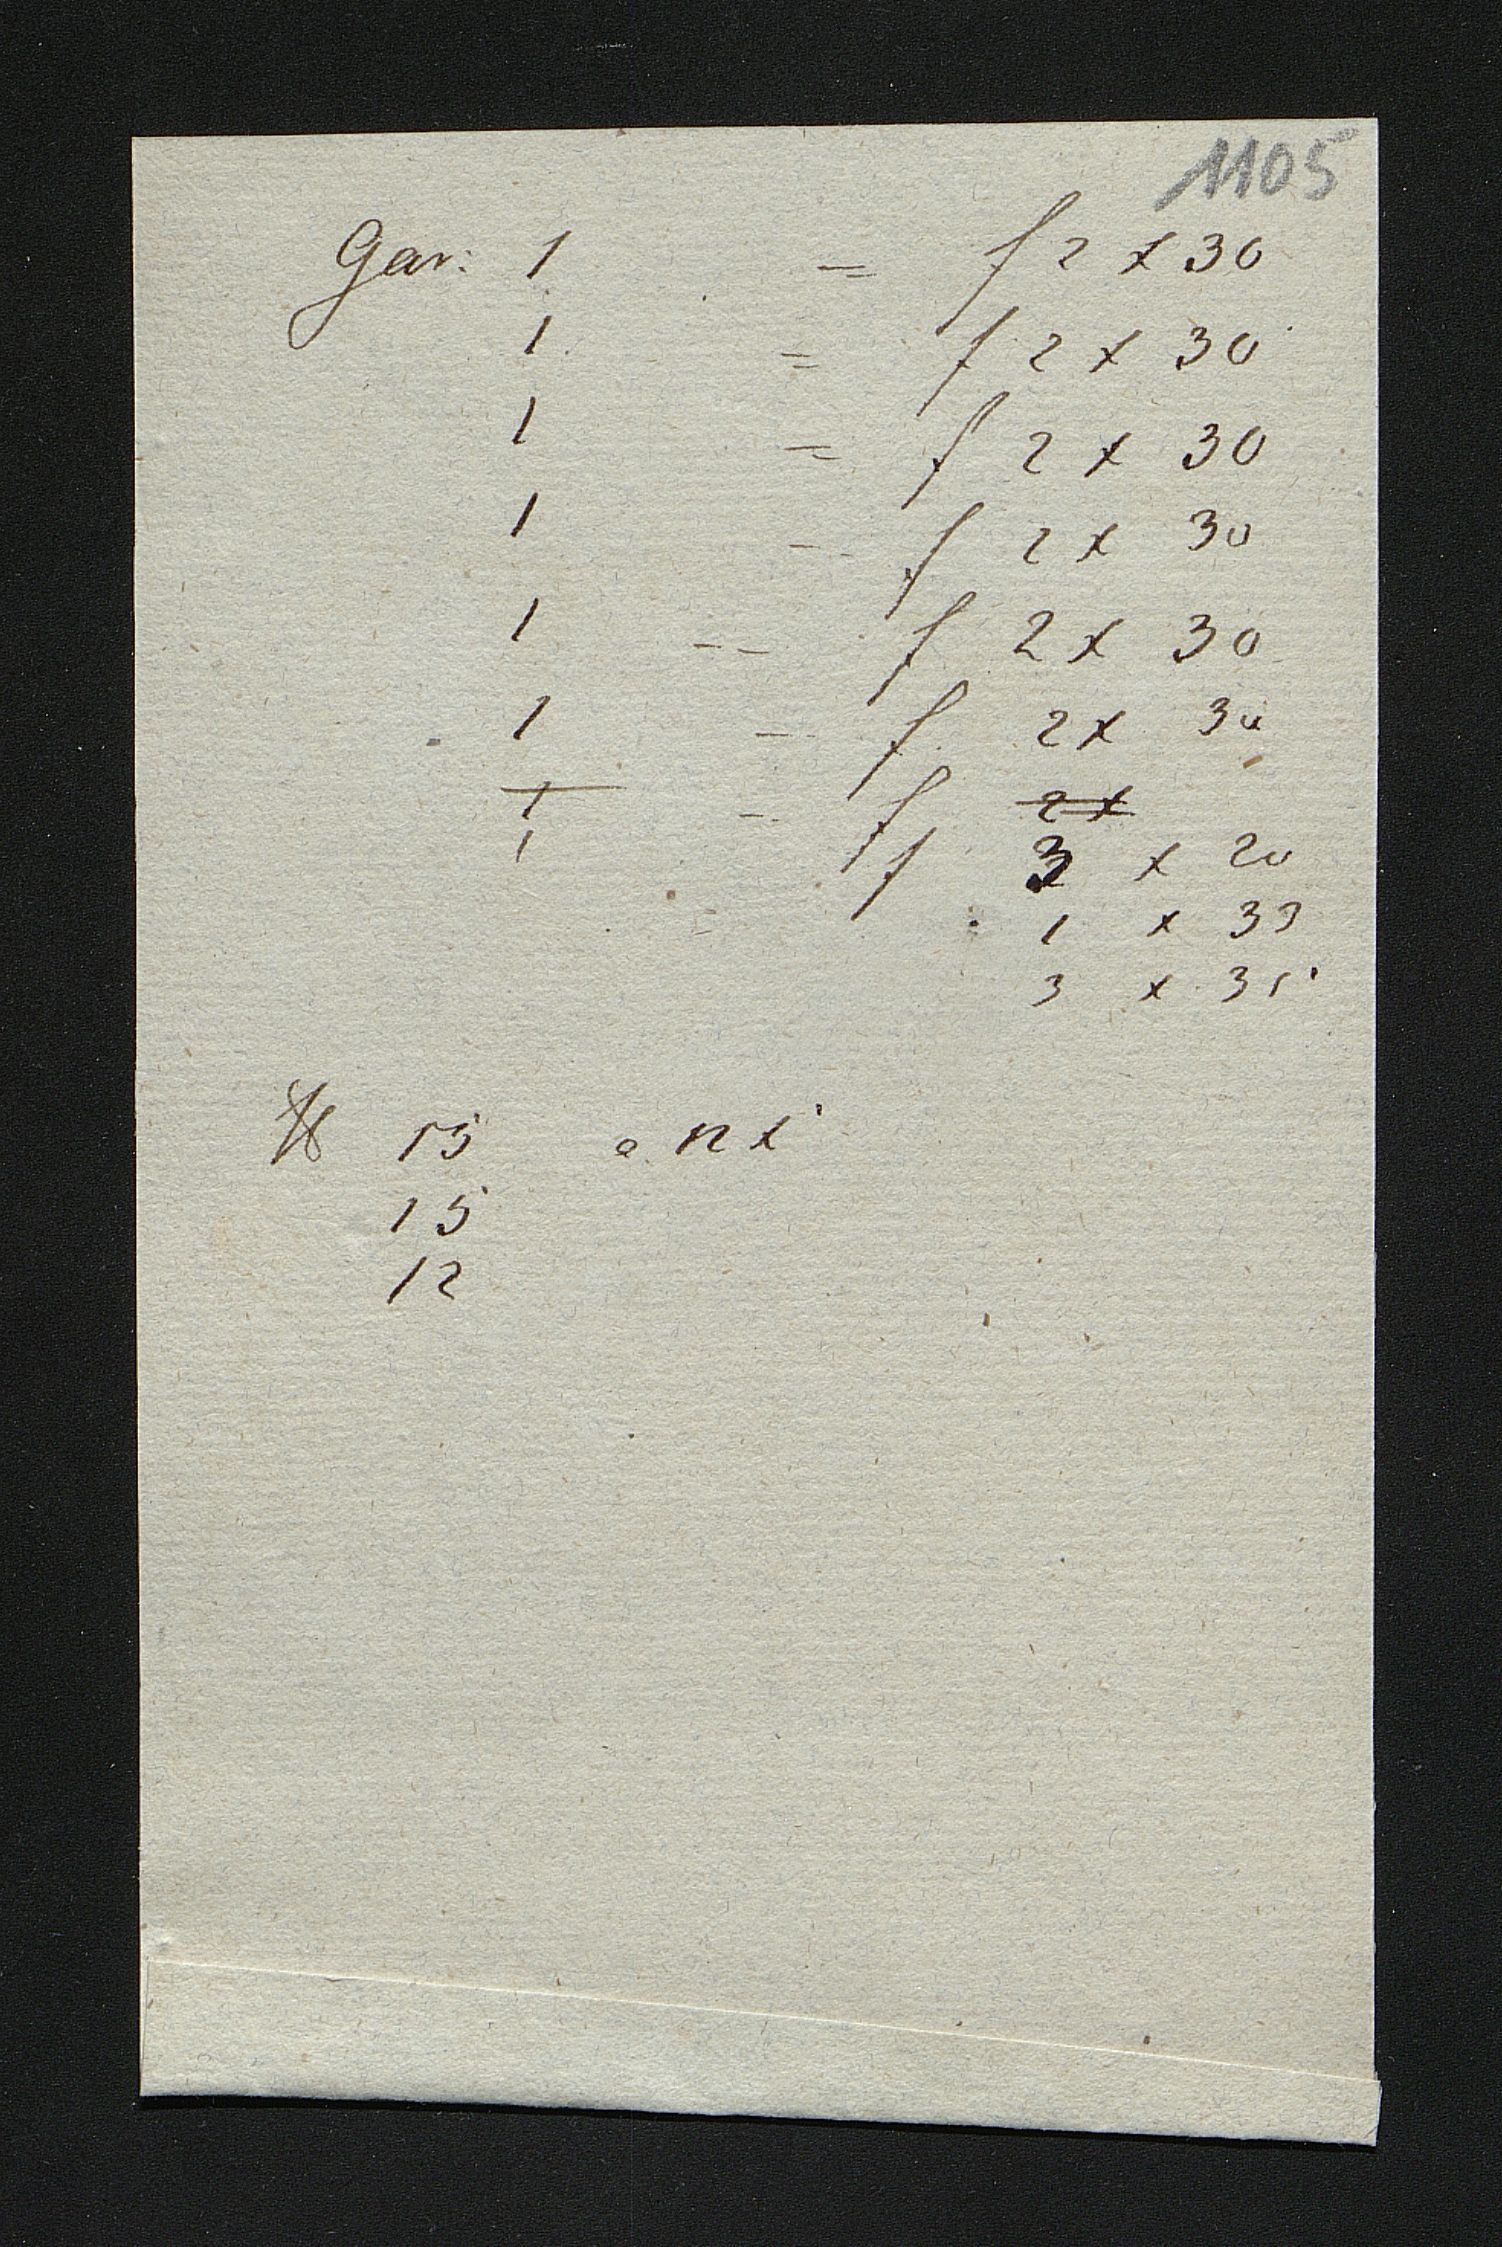 1105
Gar: 1 = f 2 x 30
1 = f 2 x 30
1 = f 2 x 30
1 - f 2 x 30
1 -- f 2 x 30
1 - f 2 x 30
1 - f 2 x
1 f 3 x 20
1 x 33
3 x 35
℔ 15 a 12 x
15
12